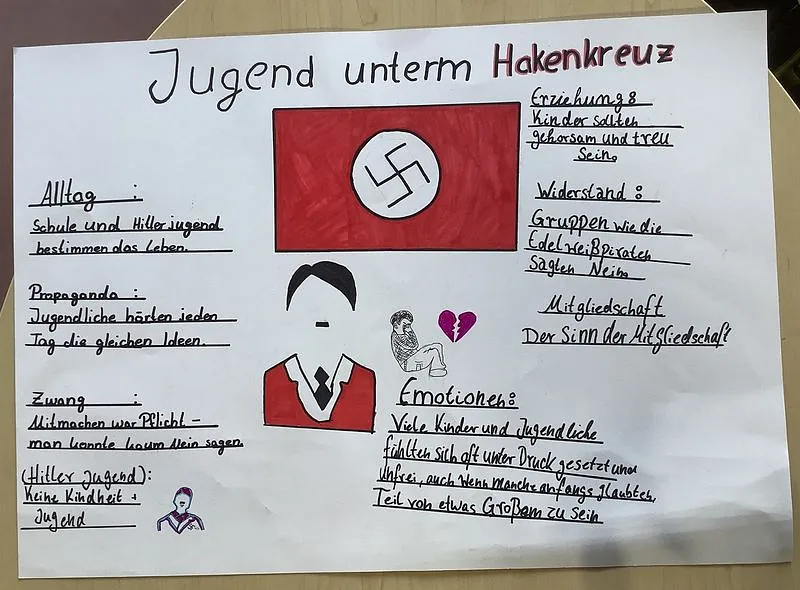 Jugend unterm Hakenkreuz
Alltag :
Schule und Hitlerjugend
bestimmen das Leben.
Propaganda :
Jugendliche hörten jeden
Tag die gleichen Ideen.
Zwang :
Mitmachen war Pflicht –
man konnte kaum Nein sagen.
(Hitler Jugend):
Keine Kindheit +
Jugend
Erziehung:
Kinder sollten
gehorsam und treu
sein.
Widerstand :
Gruppen wie die
Edelweißpiraten
sagten Nein.
Mitgliedschaft
Der Sinn der Mitgliedschaft
Emotionen:
Viele Kinder und Jugendliche
fühlten sich oft unter Druck gesetzt und
Unfrei, auch wenn manche anfangs glaubten,
Teil von etwas Großem zu sein